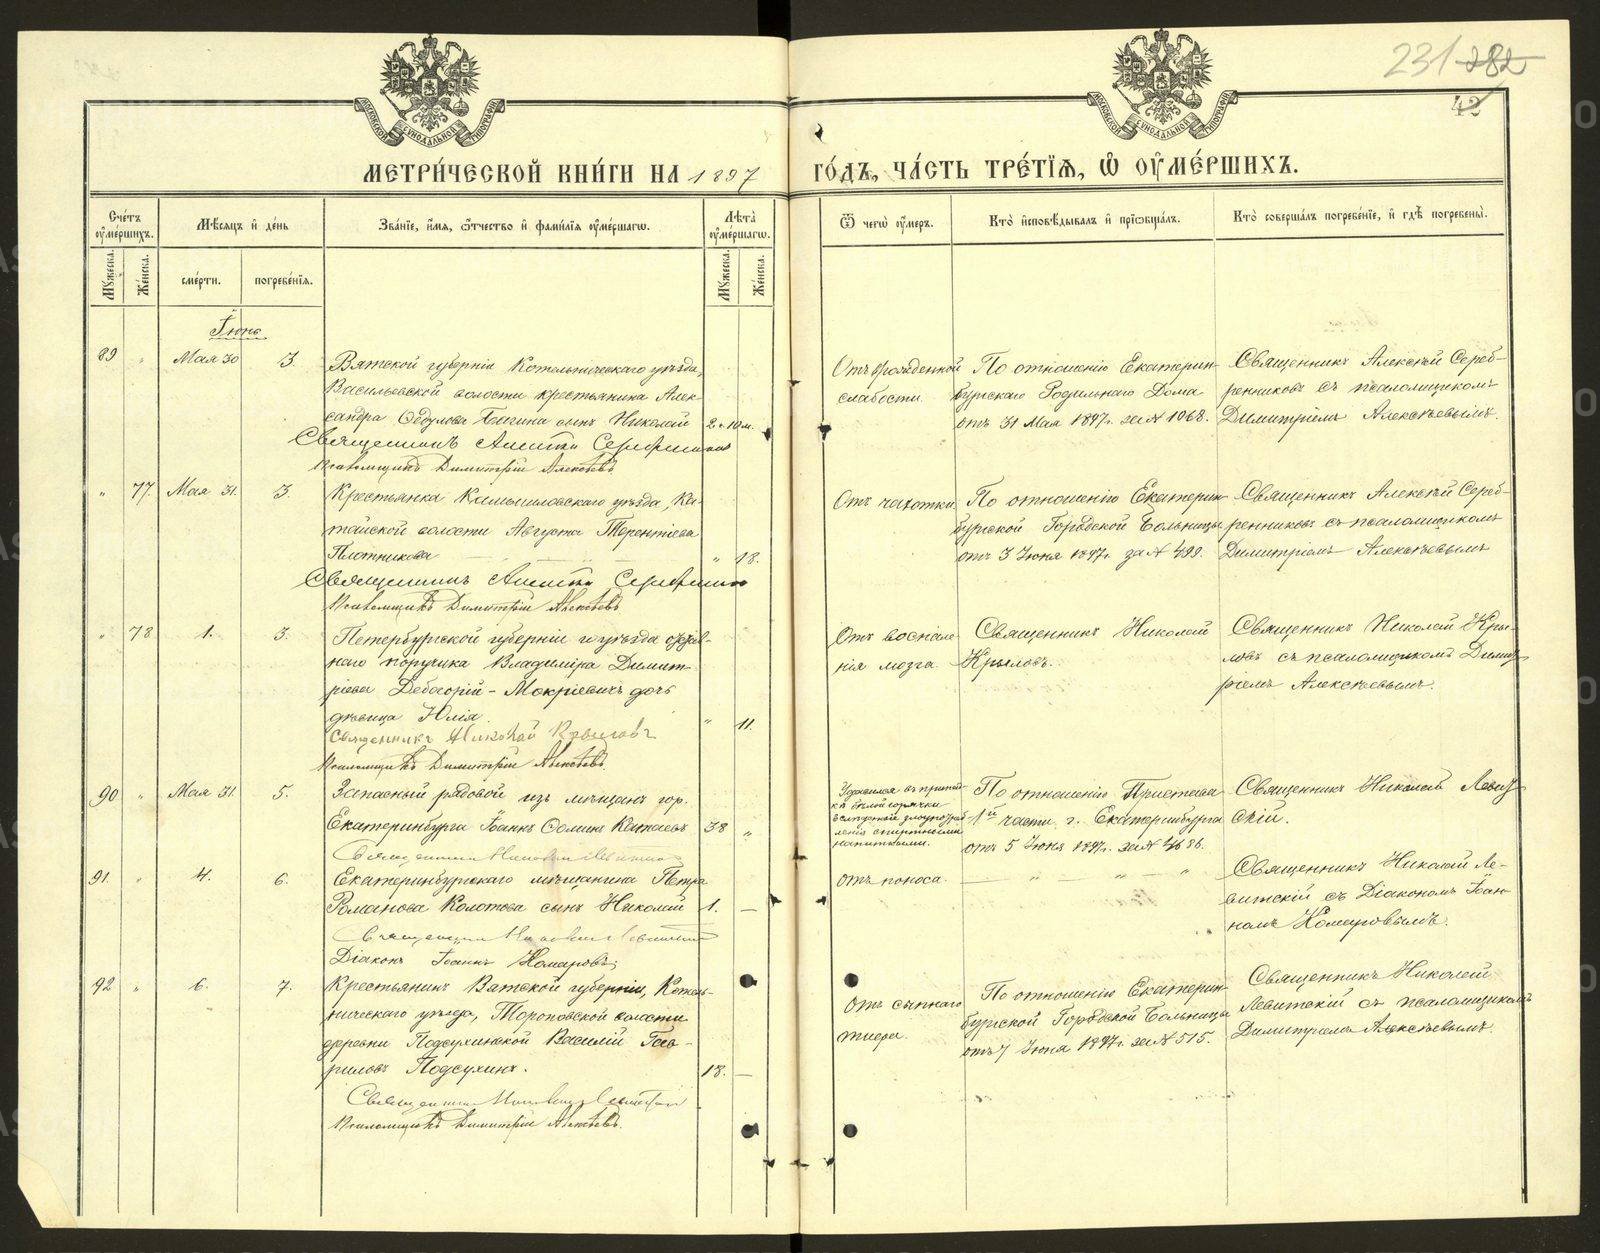 231 282
42
МОСКОВСКОЙ СѴНОДАЛЬНОЙ ТИПОГРАФІИ
МОСКОВСКОЙ СѴНОДАЛЬНОЙ ТИПОГРАФІИ
МЕТРИ́ЧЕСКОЙ КНИ́ГИ НА 1897 ГО́ДЪ, ЧА́СТЬ ТРЕ́ТІѦ, Ѽ ОУ҆МЕ́РШИХЪ.
Сче́тъ оу҆ме́ршихъ.
Мѣ́сяцъ и҆ де́нь
Зва́ніе, и҆́мя, ѻ҆́тчество и҆ фами́лія оу҆ме́ршагѡ.
Лѣ́та оу҆ме́ршагѡ.
Ѿ чегѡ̀ оу҆́меръ.
Кто̀ и҆сповѣ́дывалъ и҆ прїѡбща́лъ.
Кто̀ соверша́лъ погребе́ніе, и҆ гдѣ̀ погребены̀.
Мꙋ́жеска.
Же́нска.
сме́рти.
погребе́нія.
Мꙋ́жеска.
Же́нска.
Іюнь
89 " Мая 30 3.
Вятской губерніи Котельническаго уѣзда,
Васильевской волости крестьянина Алек-
сандра Ѳедулова сынъ Николай 2 ч. 10 м.
Священникъ
Псаломщикъ Димитрій Алексѣевъ
Отъ врожденной
слабости.
По отношенію Екатерин-
бургскаго Родильнаго Дома
отъ 31 Мая 1897 г. за № 1068.
Священникъ Алексѣй Сереб-
ренниковъ съ псаломщикомъ
Димитріемъ Алексѣевымъ.
" 77. Мая 31. 3.
Крестьянка Камышловскаго уѣзда, Ка-
тайской волости Августа Терентіева
Плотникова " 18.
Священникъ
Псаломщикъ Димитрій Алексѣевъ
Отъ чахотки.
По отношенію Екатерин-
бургской Городской Больницы
отъ 3 Іюня 1897 г. за № 499.
Священникъ Алексѣй Сереб-
ренниковъ съ псаломщикомъ
Димитріемъ Алексѣевымъ
" 78 1. 3.
Петербургской губерніи и уѣзда отстав-
наго поручика Владиміра Димит-
ріева Дебогорій-Мокріевичъ дочь
дѣвица Юлія. " 11.
Священникъ Николай Крыловъ
Псаломщикъ Димитрій Алексѣевъ.
Отъ воспале-
нія мозга.
Священникъ Николай
Крыловъ.
Священникъ Николай Кры-
ловъ съ псаломщикомъ Димит-
ріемъ Алексѣевымъ.
90 " Мая 31. 5.
Запасный рядовой изъ мѣщанъ гор.
Екатеринбурга Іоаннъ Катаевъ 38 "
Священникъ Николай Левитскій
Удавился въ припад-
кѣ бѣлой горячки
вслѣдствіе злоупотреб-
ленія спиртными
напитками.
По отношенію Пристава
1й части г. Екатеринбурга
отъ 5 Іюня 1897 г. за № 4686.
Священникъ Николай Левит-
скій.
91. " 4. 6.
Екатеринбургскаго мѣщанина Петра
Романова Колотова сынъ Николай 1. —
Священникъ Николай Левитскій
Діаконъ Іоаннъ Комаровъ.
отъ поноса.
— " — " — "
Священникъ Николай Ле-
витскій съ Діакономъ Іоан-
номъ Комаровымъ.
92 " 6. 7.
Крестьянинъ Вятской губерніи, Котель-
ническаго уѣзда, Тороповской волости
деревни Подсухинской Василій Гав-
риловъ Подсухинъ. 18. —
Священникъ Николай Левитскій
Псаломщикъ Димитрій Алексѣевъ.
Отъ сыпнаго
тифа.
По отношенію Екатерин-
бургской Городской Больницы
отъ 7 Іюня 1897 г. за № 515.
Священникъ Николай
Левитскій съ псаломщикомъ
Димитріемъ Алексѣевымъ.